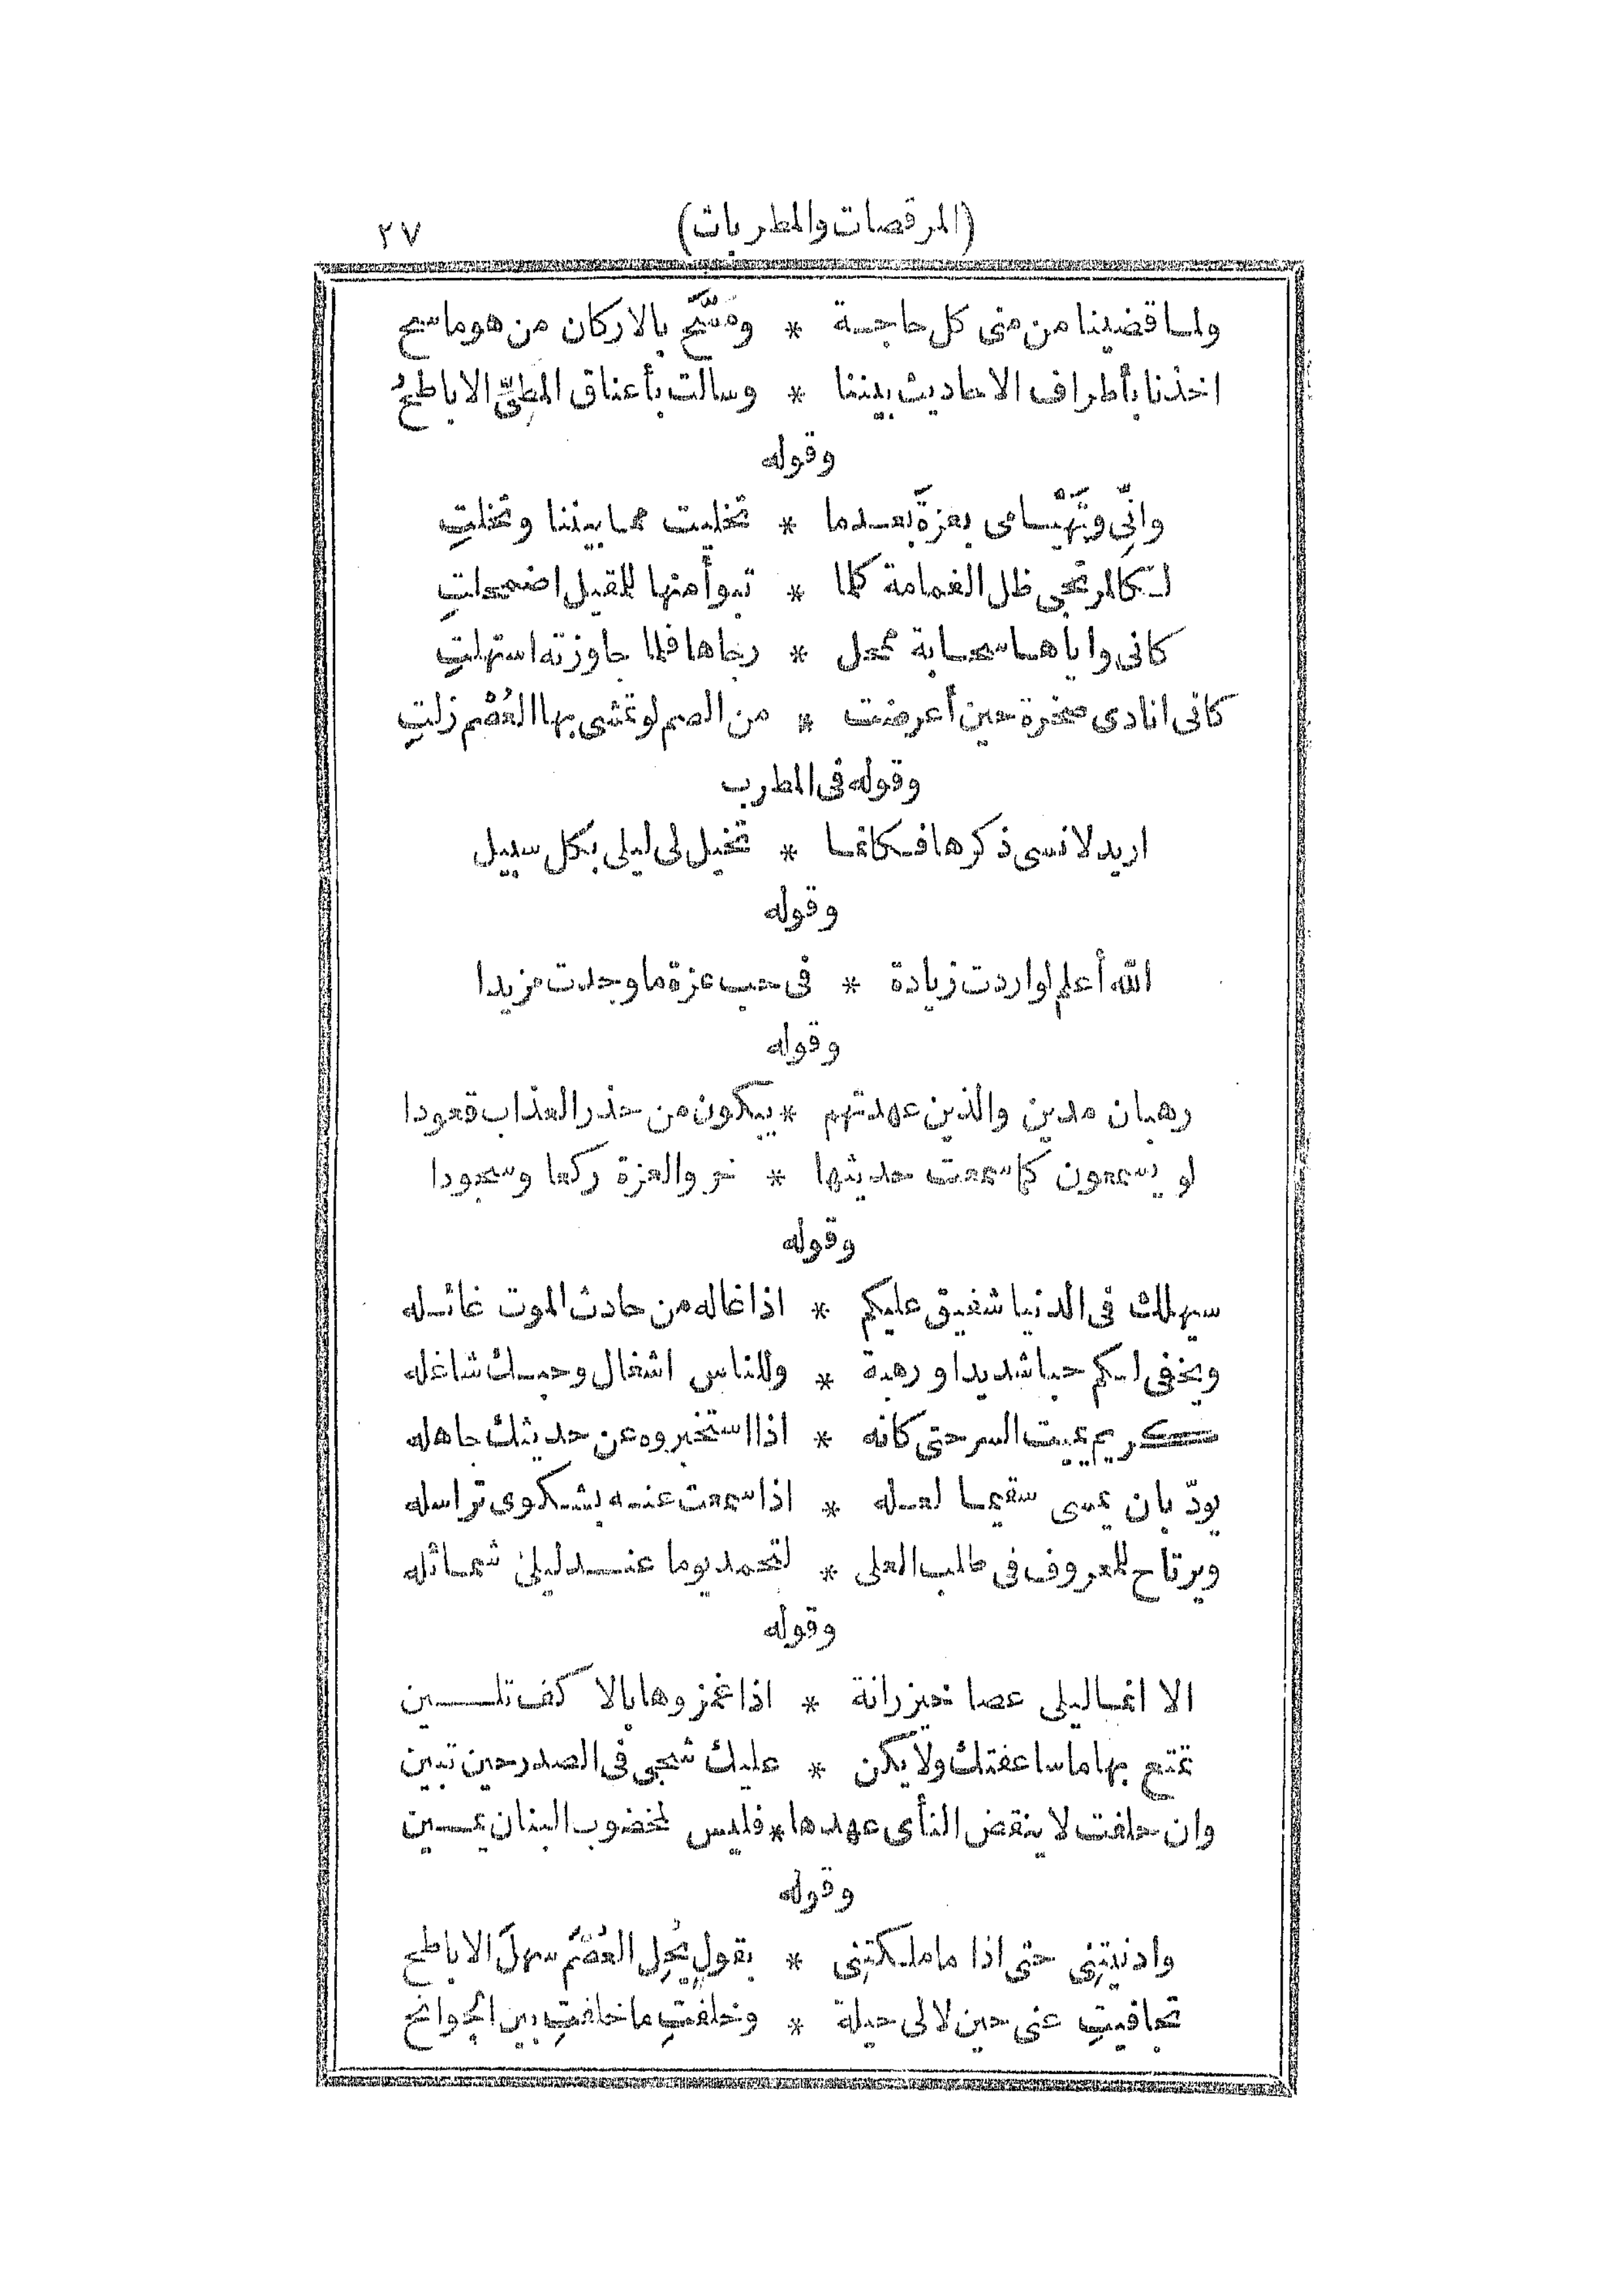 (المرقصات والمطربات) ٢٧
ولما قضينا من منى كل حاجة * ومَسَّحَ بالاركان من هو ماسح
اخذنا بأطراف الاحاديث بيننا * وسالت بأعناق المطِىِّ الاباطحُ
وقوله
وانِّى وتَهْيامى بعزةَ بعدما * تخليت مما بيننا وتخلتِ
لكالمرتجى ظل الغمامة كلما * تبوأ منها للمقيل اضمحلتِ
كانى واياها سحابة ممحل * رجاها فلما جاوزته استهلتِ
كانى انادى صخرة حين أعرضت * من الصم لو تمشى بها العُصْم زلتِ
وقوله فى المطرب
اريد لانسى ذكرها فكانما * تخيل لى ليلى بكل سبيل
وقوله
الله أعلم لو اردت زيادة * فى حب عزة ما وجدت مزيدا
وقوله
رهبان مدين والذين عهدتهم * يبكون من حذر العذاب قعودا
لو يسمعون كما سمعت حديثها * خروا لعزة ركعا وسجودا
وقوله
سيهلك فى الدنيا شفيق عليكم * اذا غاله من حادث الموت غائله
ويخفى لكم حبا شديدا ورهبة * وللناس اشغال وحبك شاغله
كريم يميت السر حتى كانه * اذا استخبروه عن حديثك جاهله
يودّ بان يمسى سقيما لعله * اذا سمعت عنه بشكوى تراسله
ويرتاح للمعروف فى طلب العلى * لتحمد يوما عند ليلى شمائله
وقوله
الا انما ليلى عصا خيزرانة * اذا غمزوها بالاكف تلين
تمتع بها ما ساعفتك ولا يكن * عليك شجى فى الصدر حين تبين
وان حلفت لا ينقض النأى عهدها * فليس لمخضوب البنان يمين
وقوله
وادنيتِنِى حتى اذا ما ملكتِنِى * بقولٍ يُحِل العُصْمَ سهلَ الاباطح
تجافيتِ عنى حين لا لى حيلة * وخلفتِ ما خلفتِ بين الجوانح